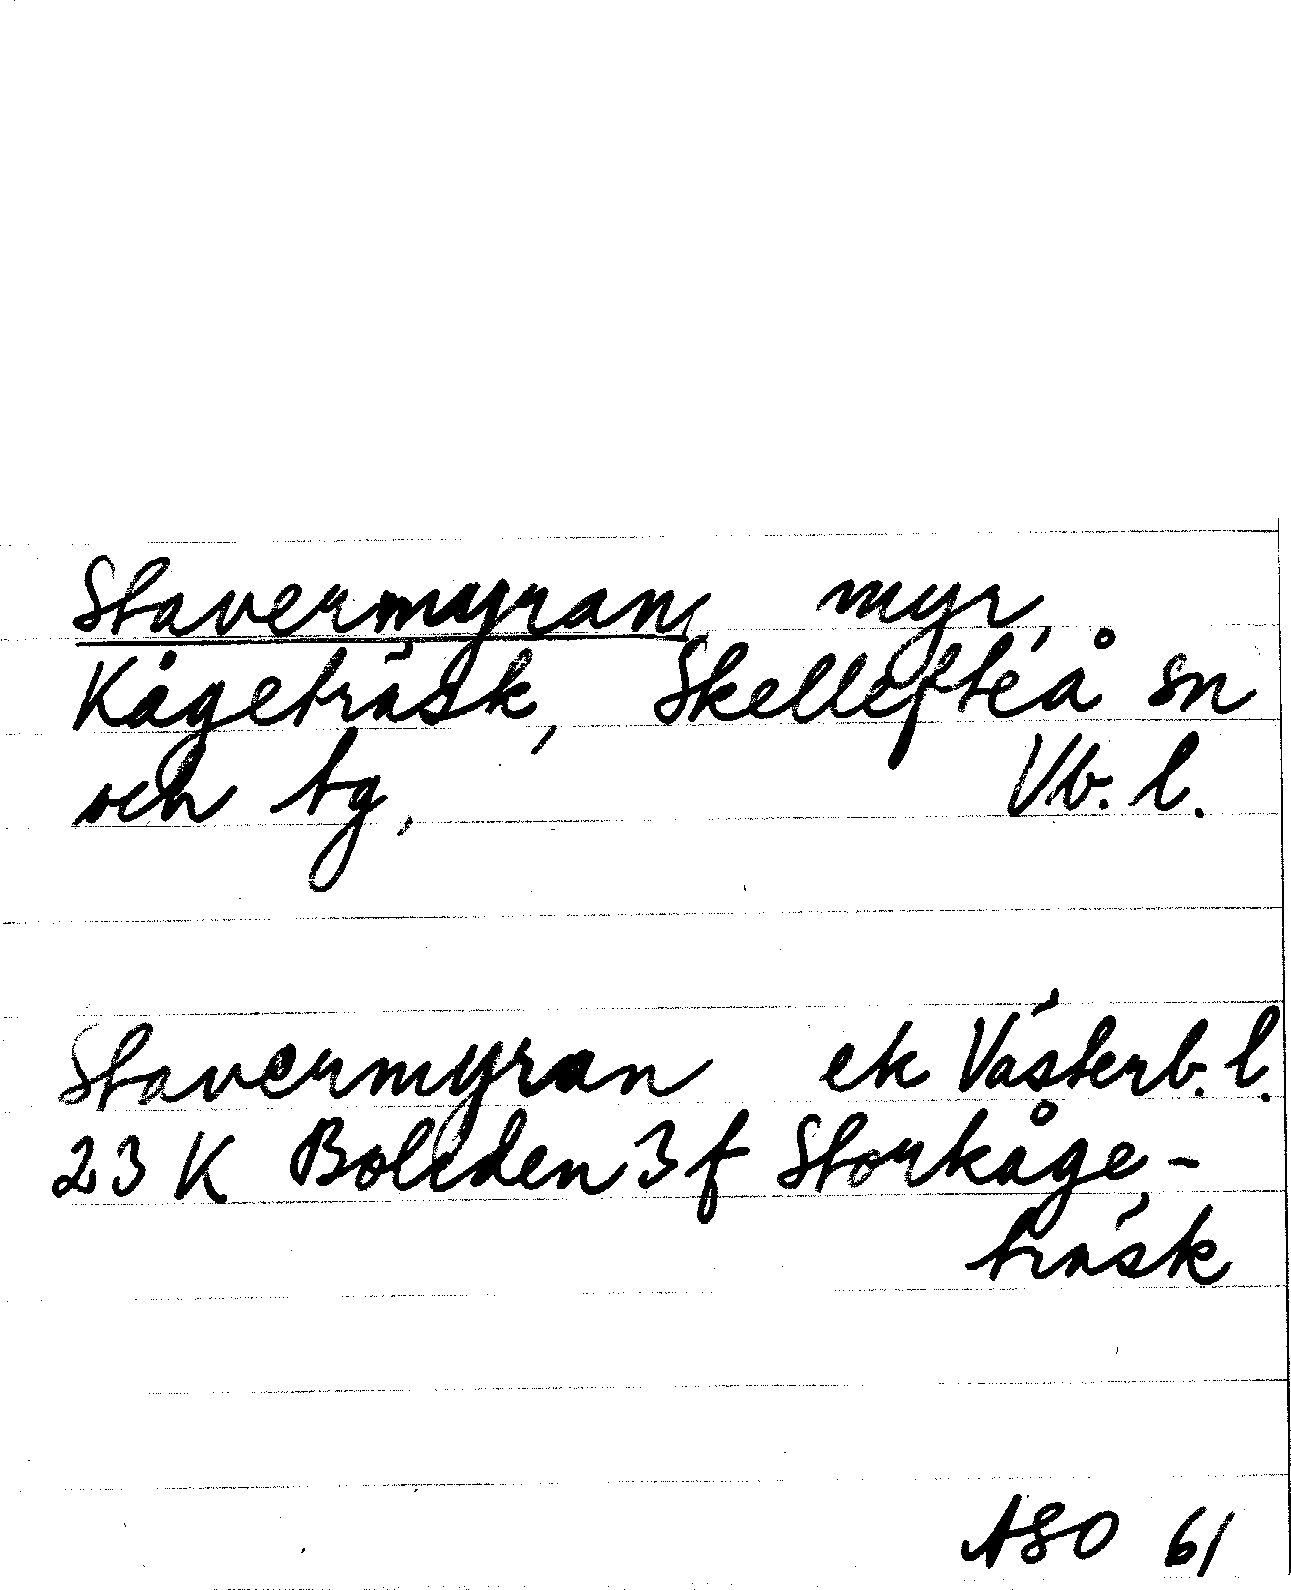 Stavermyran, myr,
Kågeträsk, Skellefteå sn
och tg, Vb. l.
Stavermyran ek Västerb. l.
23 K Boliden 3 f Storkåge-
träsk
ASO 61